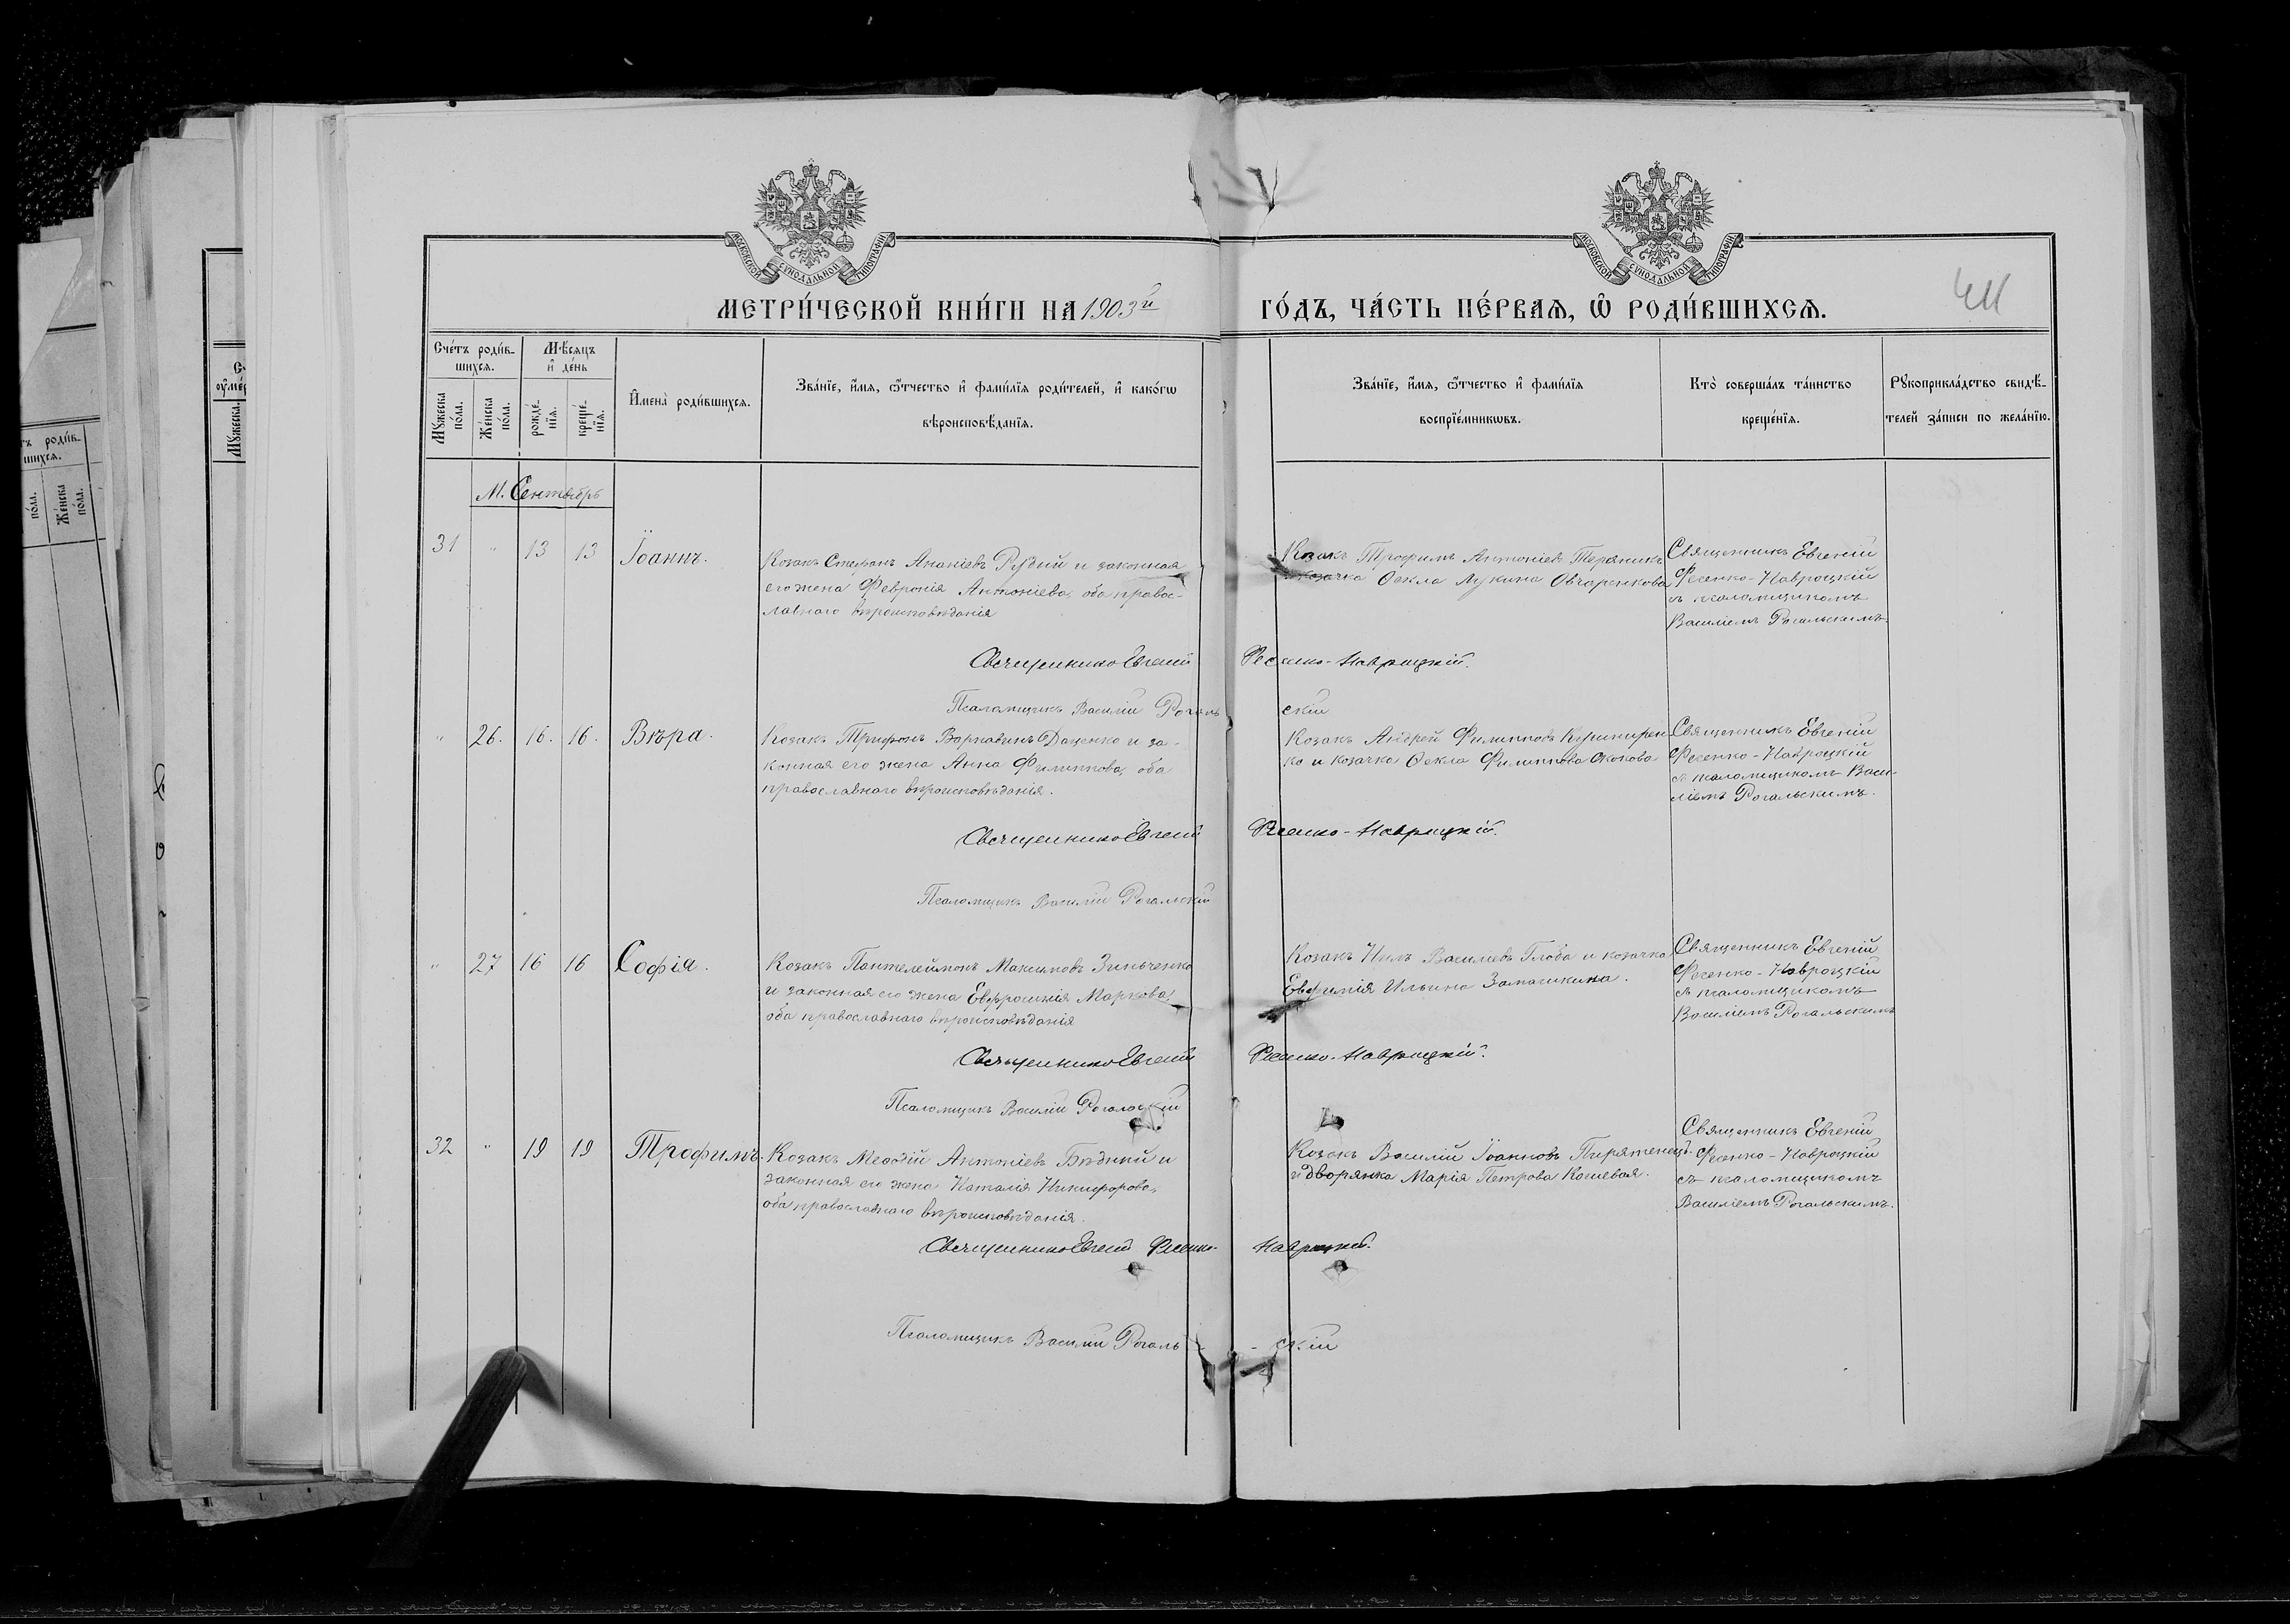 МОСКОВСКОЙ СУНОДАЛЬНОЙ ТИПОГРАФІИ
МОСКОВСКОЙ СУНОДАЛЬНОЙ ТИПОГРАФІИ
МЕТРИ́ЧЕСКОЙ КНИ́ГИ НА 1903й ГО́ДЪ, ЧА́СТЬ ПЕ́РВАѦ, Ѡ҆ РОДИ́ВШИХСѦ.
Сче́тъ роди́в-
шихсѧ.
Мꙋ́жеска по́ла.
Же́нска по́ла.
Мѣ́сѧцъ
и҆ де́нь
рожде́-
нїѧ.
креще́-
нїѧ.
И҆мена̀ роди́вшихсѧ.
Зва́нїе, и҆́мѧ, ѻ҆́тчество и҆ фами́лїѧ роди́телей, и҆ како́гѡ
вѣроисповѣ́данїѧ.
Зва́нїе, и҆́мѧ, ѻ҆́тчество и҆ фами́лїѧ
воспрїе́мникѡвъ.
Кто̀ соверша́лъ та́инство
креще́нїѧ.
Рꙋкоприкла́дство свидѣ́-
телей за́писи по жела́нїю.
М. Сентябрь
31 " 13 13 Іоаннъ.
Козакъ Стефанъ Ананіевъ Рудый и законная
его жена Февронія Антоніева, оба правос-
лавнаго вѣроисповѣданія
Козакъ Трофимъ Антоніевъ
козачка Ѳекла Лукина Овчаренкова
Священникъ Евгеній
Фесенко-Навроцкій
съ псаломщикомъ
Василіемъ Рогальскимъ
Священникъ Евгеній Фесенко-Навроцкій.
Псаломщикъ Василій Рогальскій
" 26. 16. 16. Вѣра.
Козакъ Трифонъ Варнавинъ Даценко и за-
конная его жена Анна Филиппова, оба
православнаго вѣроисповѣданія.
Козакъ Андрей Филипповъ
ко и козачка Ѳекла Филиппова
Священникъ Евгеній
Фесенко-Навроцкій
съ псаломщикомъ Васи-
ліемъ Рогальскимъ.
Священникъ Евгеній Фесенко-Навроцкій.
Псаломщикъ Василій Рогальскій
" 27 16 16 Софія.
Козакъ Пантелеимонъ Максимовъ Зинченко
и законная его жена Евфросинія Маркова,
оба православнаго вѣроисповѣданія
Козакъ Нилъ Василіевъ Глоба и козачка
Евфимія Ильина
Священникъ Евгеній
Фесенко-Навроцкій
съ псаломщикомъ
Василіемъ Рогальскимъ
Священникъ Евгеній Фесенко-Навроцкій.
Псаломщикъ Василій Рогальскій
32 " 19 19 Трофимъ.
Козакъ Меѳодій Антоніевъ Бѣдный и
законная его жена Наталія Никифорова,
оба православнаго вѣроисповѣданія.
Козакъ Василій Іоанновъ Пирятенецъ.
и дворянка Марія Петрова Кошевая.
Священникъ Евгеній
Фесенко-Навроцкій
съ псаломщикомъ
Василіемъ Рогальскимъ.
Священникъ Евгеній Фесенко-Навроцкій.
Псаломщикъ Василій Рогаль-скій